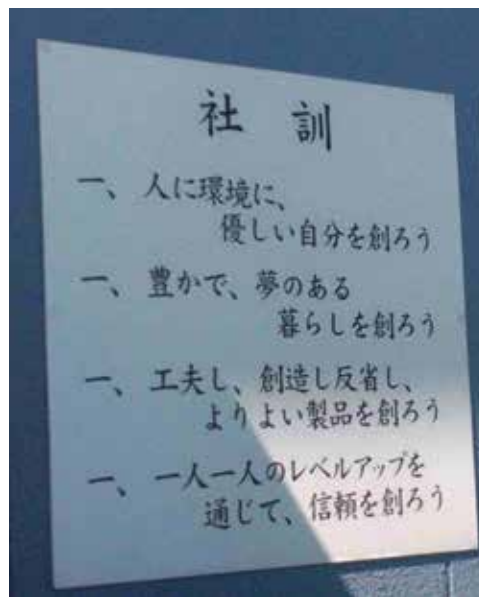 社 訓
一、人に環境に、
優しい自分を創ろう
一、豊かで、夢のある
暮らしを創ろう
一、工夫し、創造し反省し、
よりよい製品を創ろう
一、一人一人のレベルアップを
通じて、信頼を創ろう